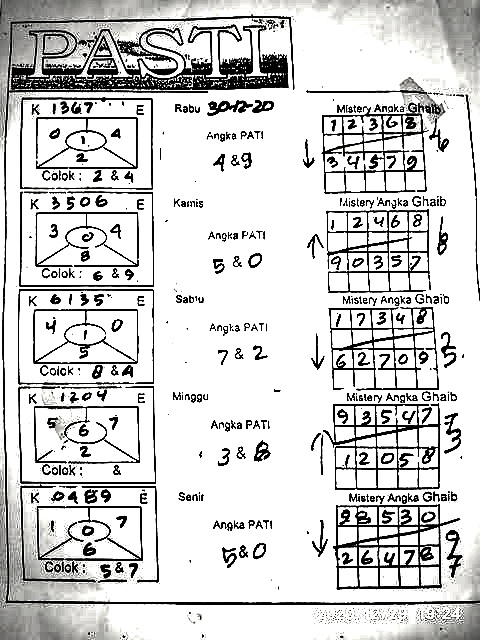 PASTI
K 1367 E
0 1 4
2
Colok : 2 & 4
Rabu 30-12-20
Angka PATI
4 & 9
Mistery Angka Ghaib
1 2 3 6 8
3 4 5 7 9
K 3506 E
3 0 4
8
Colok : 6 & 9
Kamis
Angka PATI
5 & 0
Mistery Angka Ghaib
1 2 4 6 8
9 0 3 5 7
1
8
K 6135 E
4 1 0
5
Colok : 8 & 4
Sabtu
Angka PATI
7 & 2
Mistery Angka Ghaib
1 7 3 4 8
6 2 7 0 9
2
5
K 1204 E
5 6 7
2
Colok : &
Minggu
Angka PATI
3 & 8
Mistery Angka Ghaib
9 3 5 4 7
1 2 0 5 8
7
3
K 0489 E
1 0 7
6
Colok : 5 & 7
Senin
Angka PATI
5 & 0
Mistery Angka Ghaib
9 8 5 3 0
2 6 4 7 8
9
7